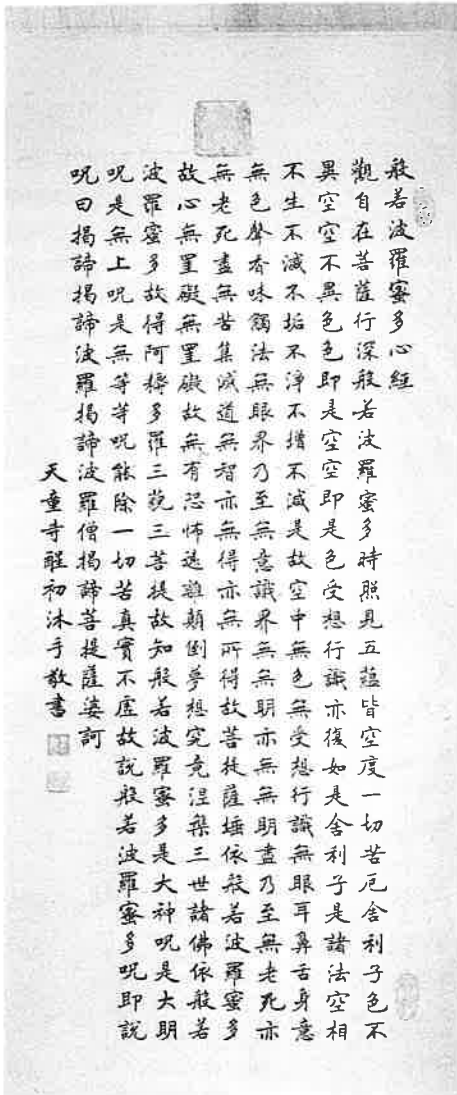 般若波羅蜜多心經
觀自在菩薩行深般若波羅蜜多時照見五蘊皆空度一切苦厄舍利子色不
異空空不異色色即是空空即是色受想行識亦復如是舍利子是諸法空相
不生不滅不垢不淨不增不減是故空中無色無受想行識無眼耳鼻舌身意
無色聲香味觸法無眼界乃至無意識界無無明亦無無明盡乃至無老死亦
無老死盡無苦集滅道無智亦無得亦無所得故菩提薩埵依般若波羅蜜多
故心無罣礙無罣礙故無有恐怖遠離顛倒夢想究竟涅槃三世諸佛依般若
波羅蜜多故得阿耨多羅三藐三菩提故知般若波羅蜜多是大神呪是大明
呪是無上呪是無等等呪能除一切苦真實不虛故說般若波羅蜜多呪即說
呪曰揭諦揭諦波羅揭諦波羅僧揭諦菩提薩婆訶
天童寺醒初沐手敬書